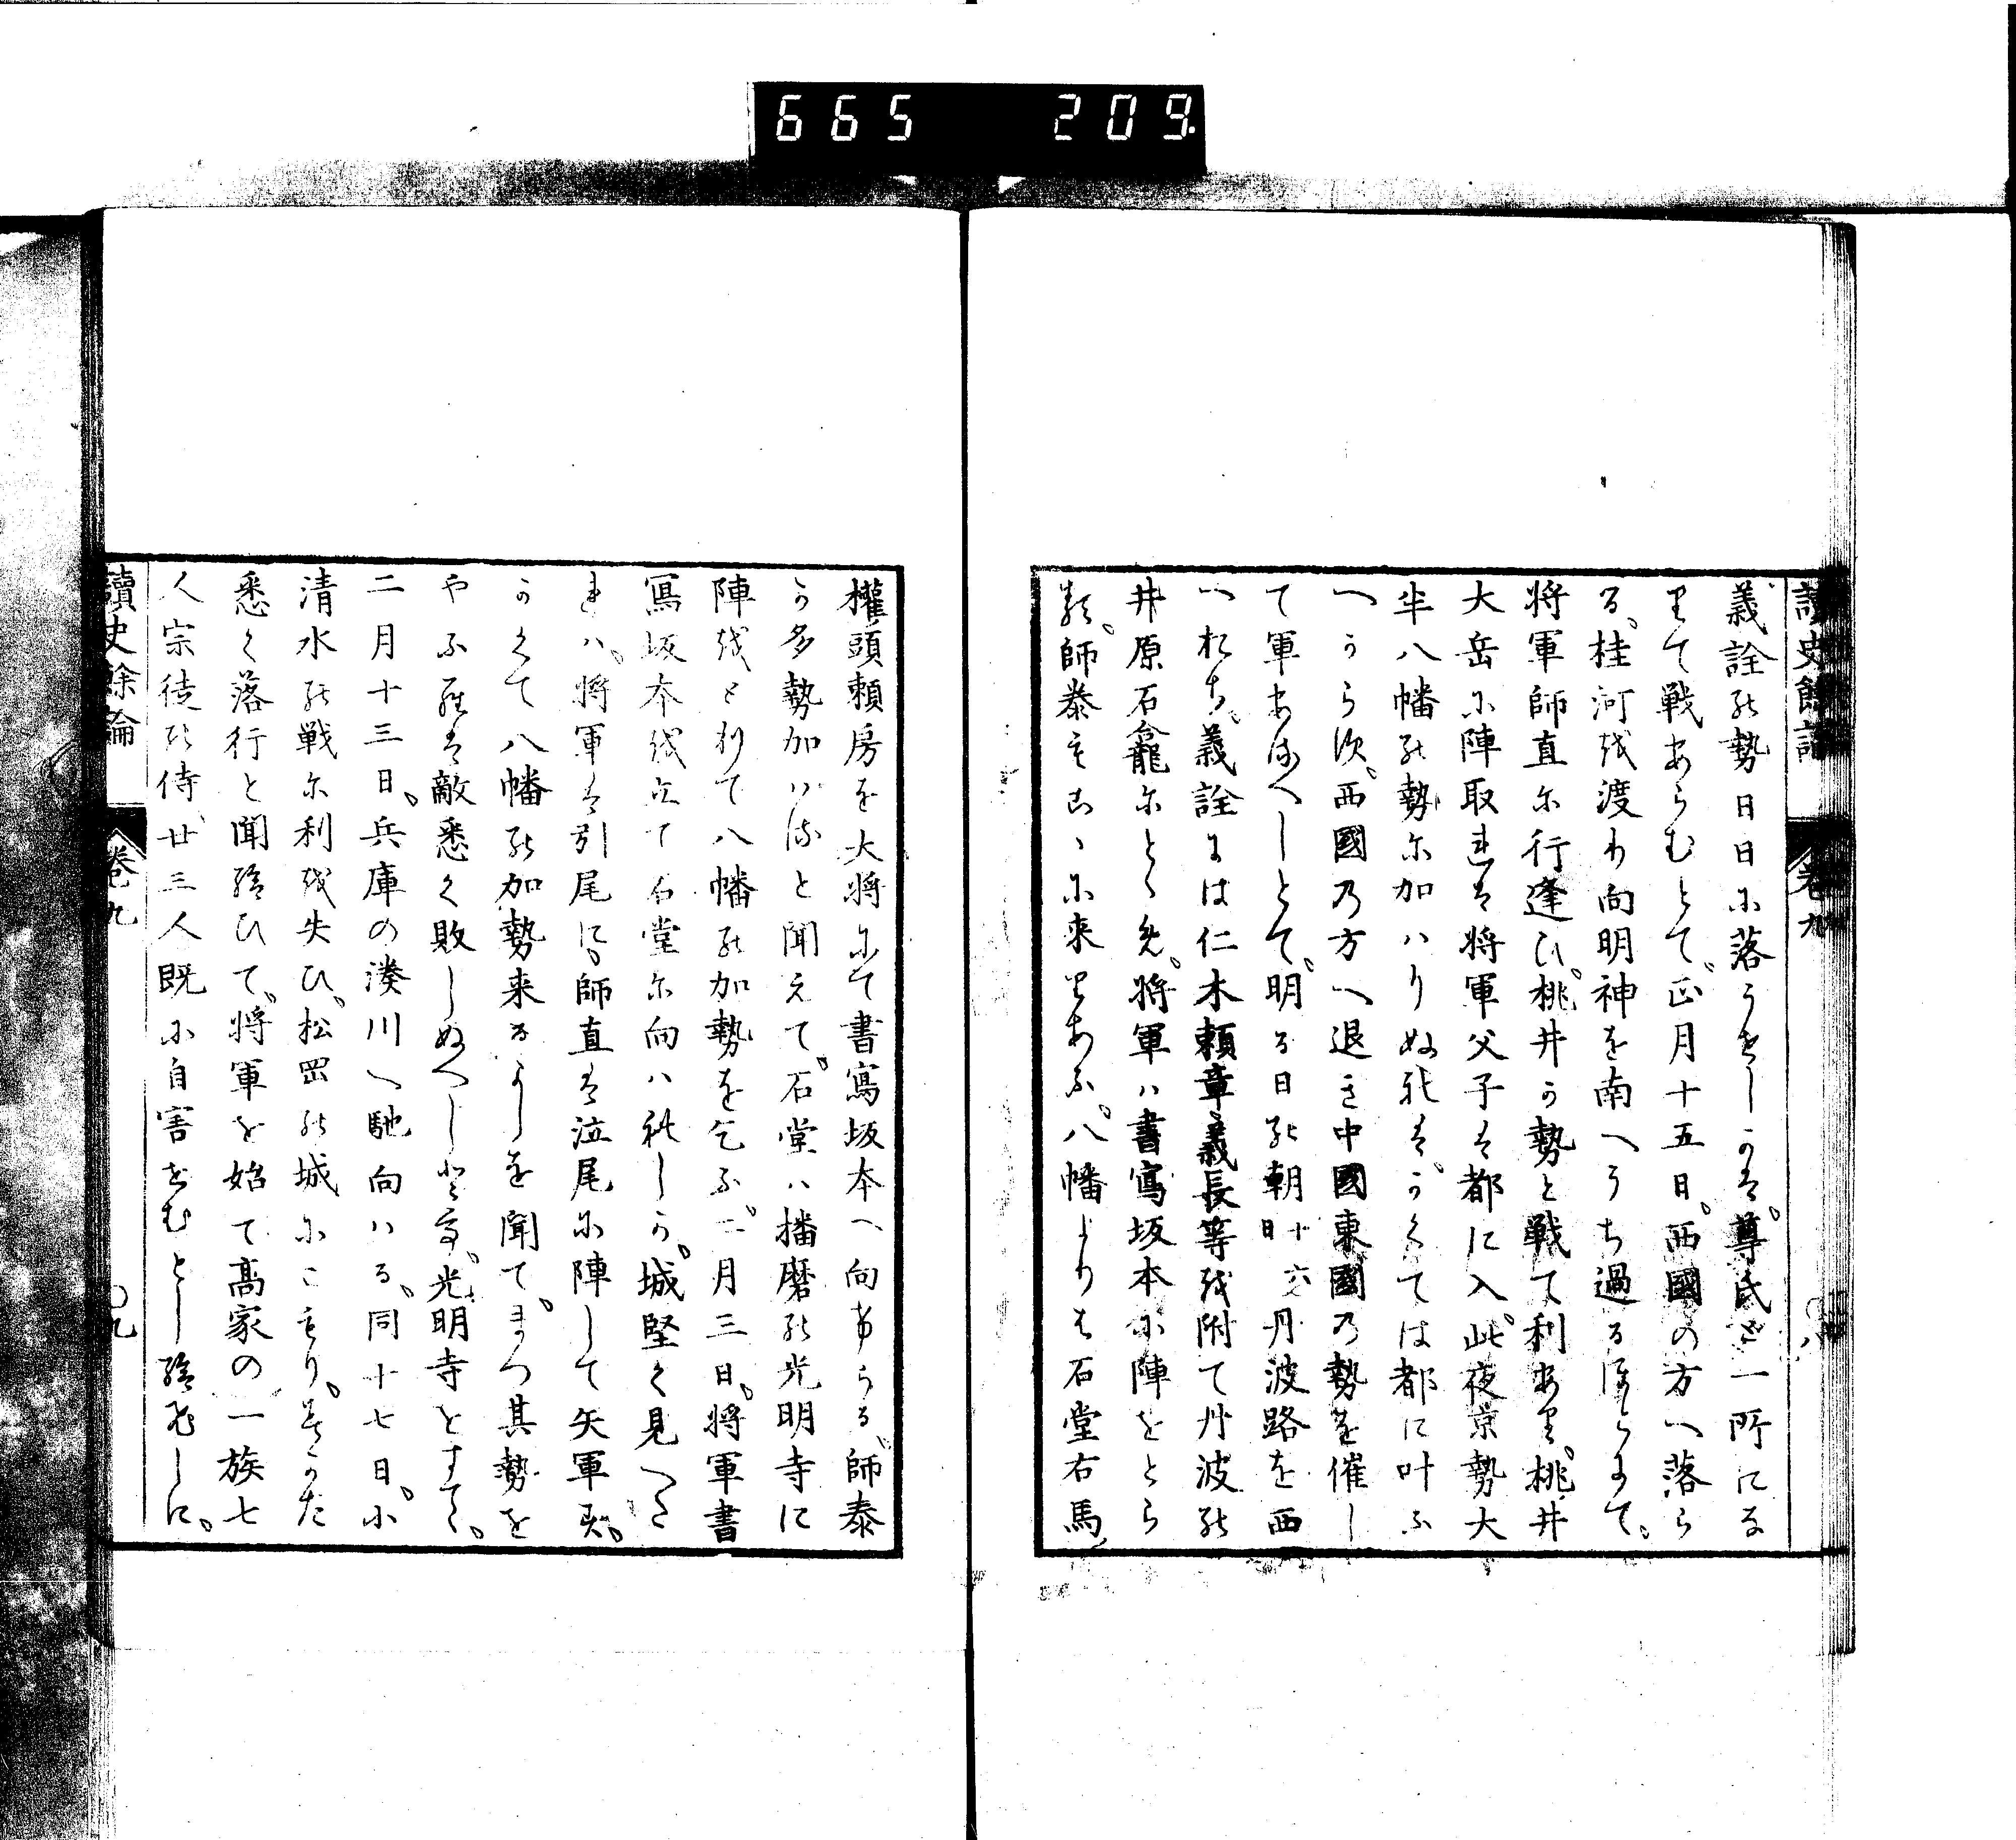 665 209
讀史餘論 卷九 〇八
義詮の勢日日に落うせしかは。尊氏と一所にな
りて戦あらむとて。正月十五日。西國の方へ落ら
る。桂河を渡り向明神を南へうち過るほとにて。
将軍師直に行逢ひ。桃井か勢と戦て利あり。桃井
大岳に陣取れは将軍父子は都に入。此夜京勢大
半八幡の勢に加ハりぬれは。かくては都に叶ふ
へからす。西國乃方へ退き中國東國乃勢を催し
て軍あるへしとて。明る日の朝十六日丹波路を西
へおち。義詮には仁木頼章義長等を附て丹波の
井原石龕にとゝめ。将軍ハ書寫坂本に陣をとら
る。師泰もこゝに来りあふ。八幡よりは石堂右馬
權頭頼房を大将にて書寫坂本へ向けらる。師泰
か多勢加ハると聞えて。石堂ハ播磨の光明寺に
陣をとりて八幡の加勢を乞ふ。二月三日。将軍書
寫坂本を立て石堂に向ハれしか。城堅く見へた
れハ。将軍は引尾に。師直は泣尾に陣して矢軍す。
かくて八幡の加勢来るよしを聞て。まつ其勢を
やふらは敵悉く敗しぬへしとて。光明寺をすてゝ。
二月十三日。兵庫の湊川へ馳向ハる。同十七日。小
清水の戦に利を失ひ。松岡の城にこもり。
悉く落行と聞給ひて。将軍を始て髙家の一族七
人宗徒の侍廿三人既に自害せむとし給ひしに。
讀史餘論 卷九 〇九